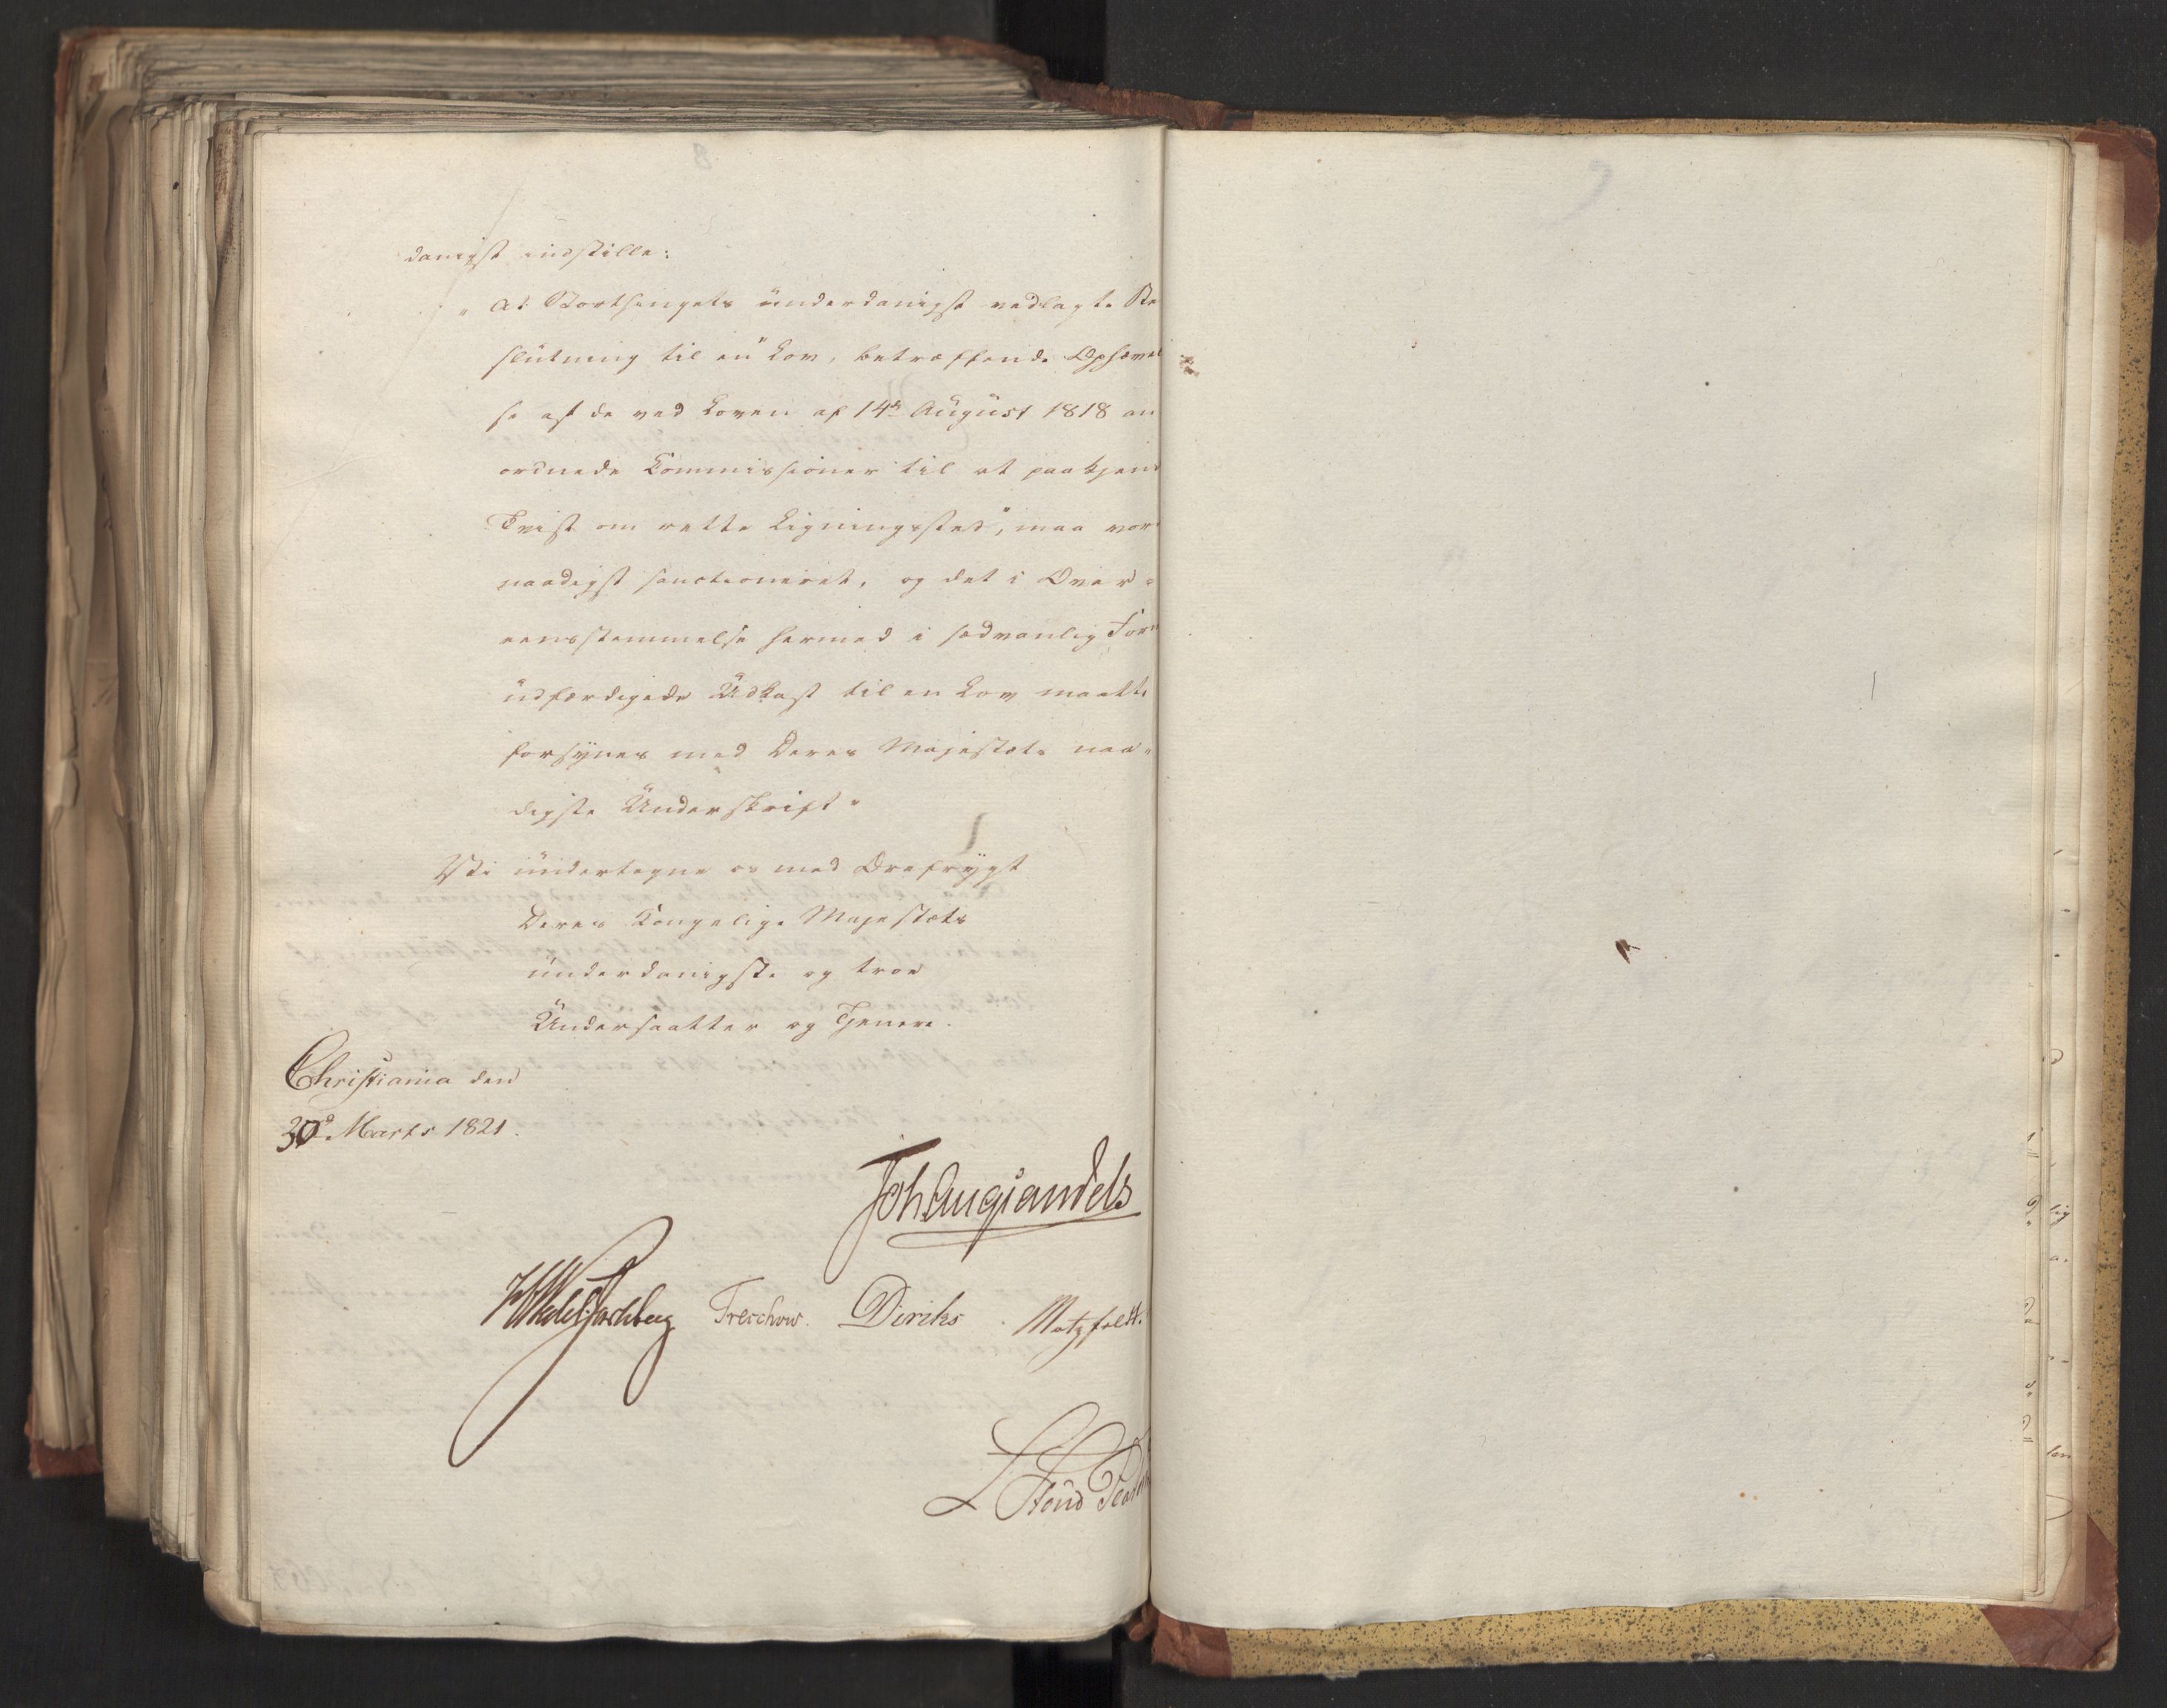 danigst indstille:
„At Storthingets underdanigst vedlagte Be
slutning til en "Lov, betræffende Ophævel
se af de ved Loven af 14de August 1818 an
ordnede Commissioner til at paakjend
Tvist om rette Ligningssted", maa vor
naadigst sanctioneret, og det i Over-
eensstemmelse hermed i sædvanlig Form
udfærdigede Udkast til en Lov maatte
forsynes med Deres Majestæts naa-
digste Underskrift"
Vi undertegne os med Ærefrygt
Deres Kongelige Majestæts
underdanigste og troe
Undersaatter og Tjenere.
Christiania den
30te Marts 1821.
Joh Aug Sandels
Treschow. Diriks Motzfeldt.
L Stoud